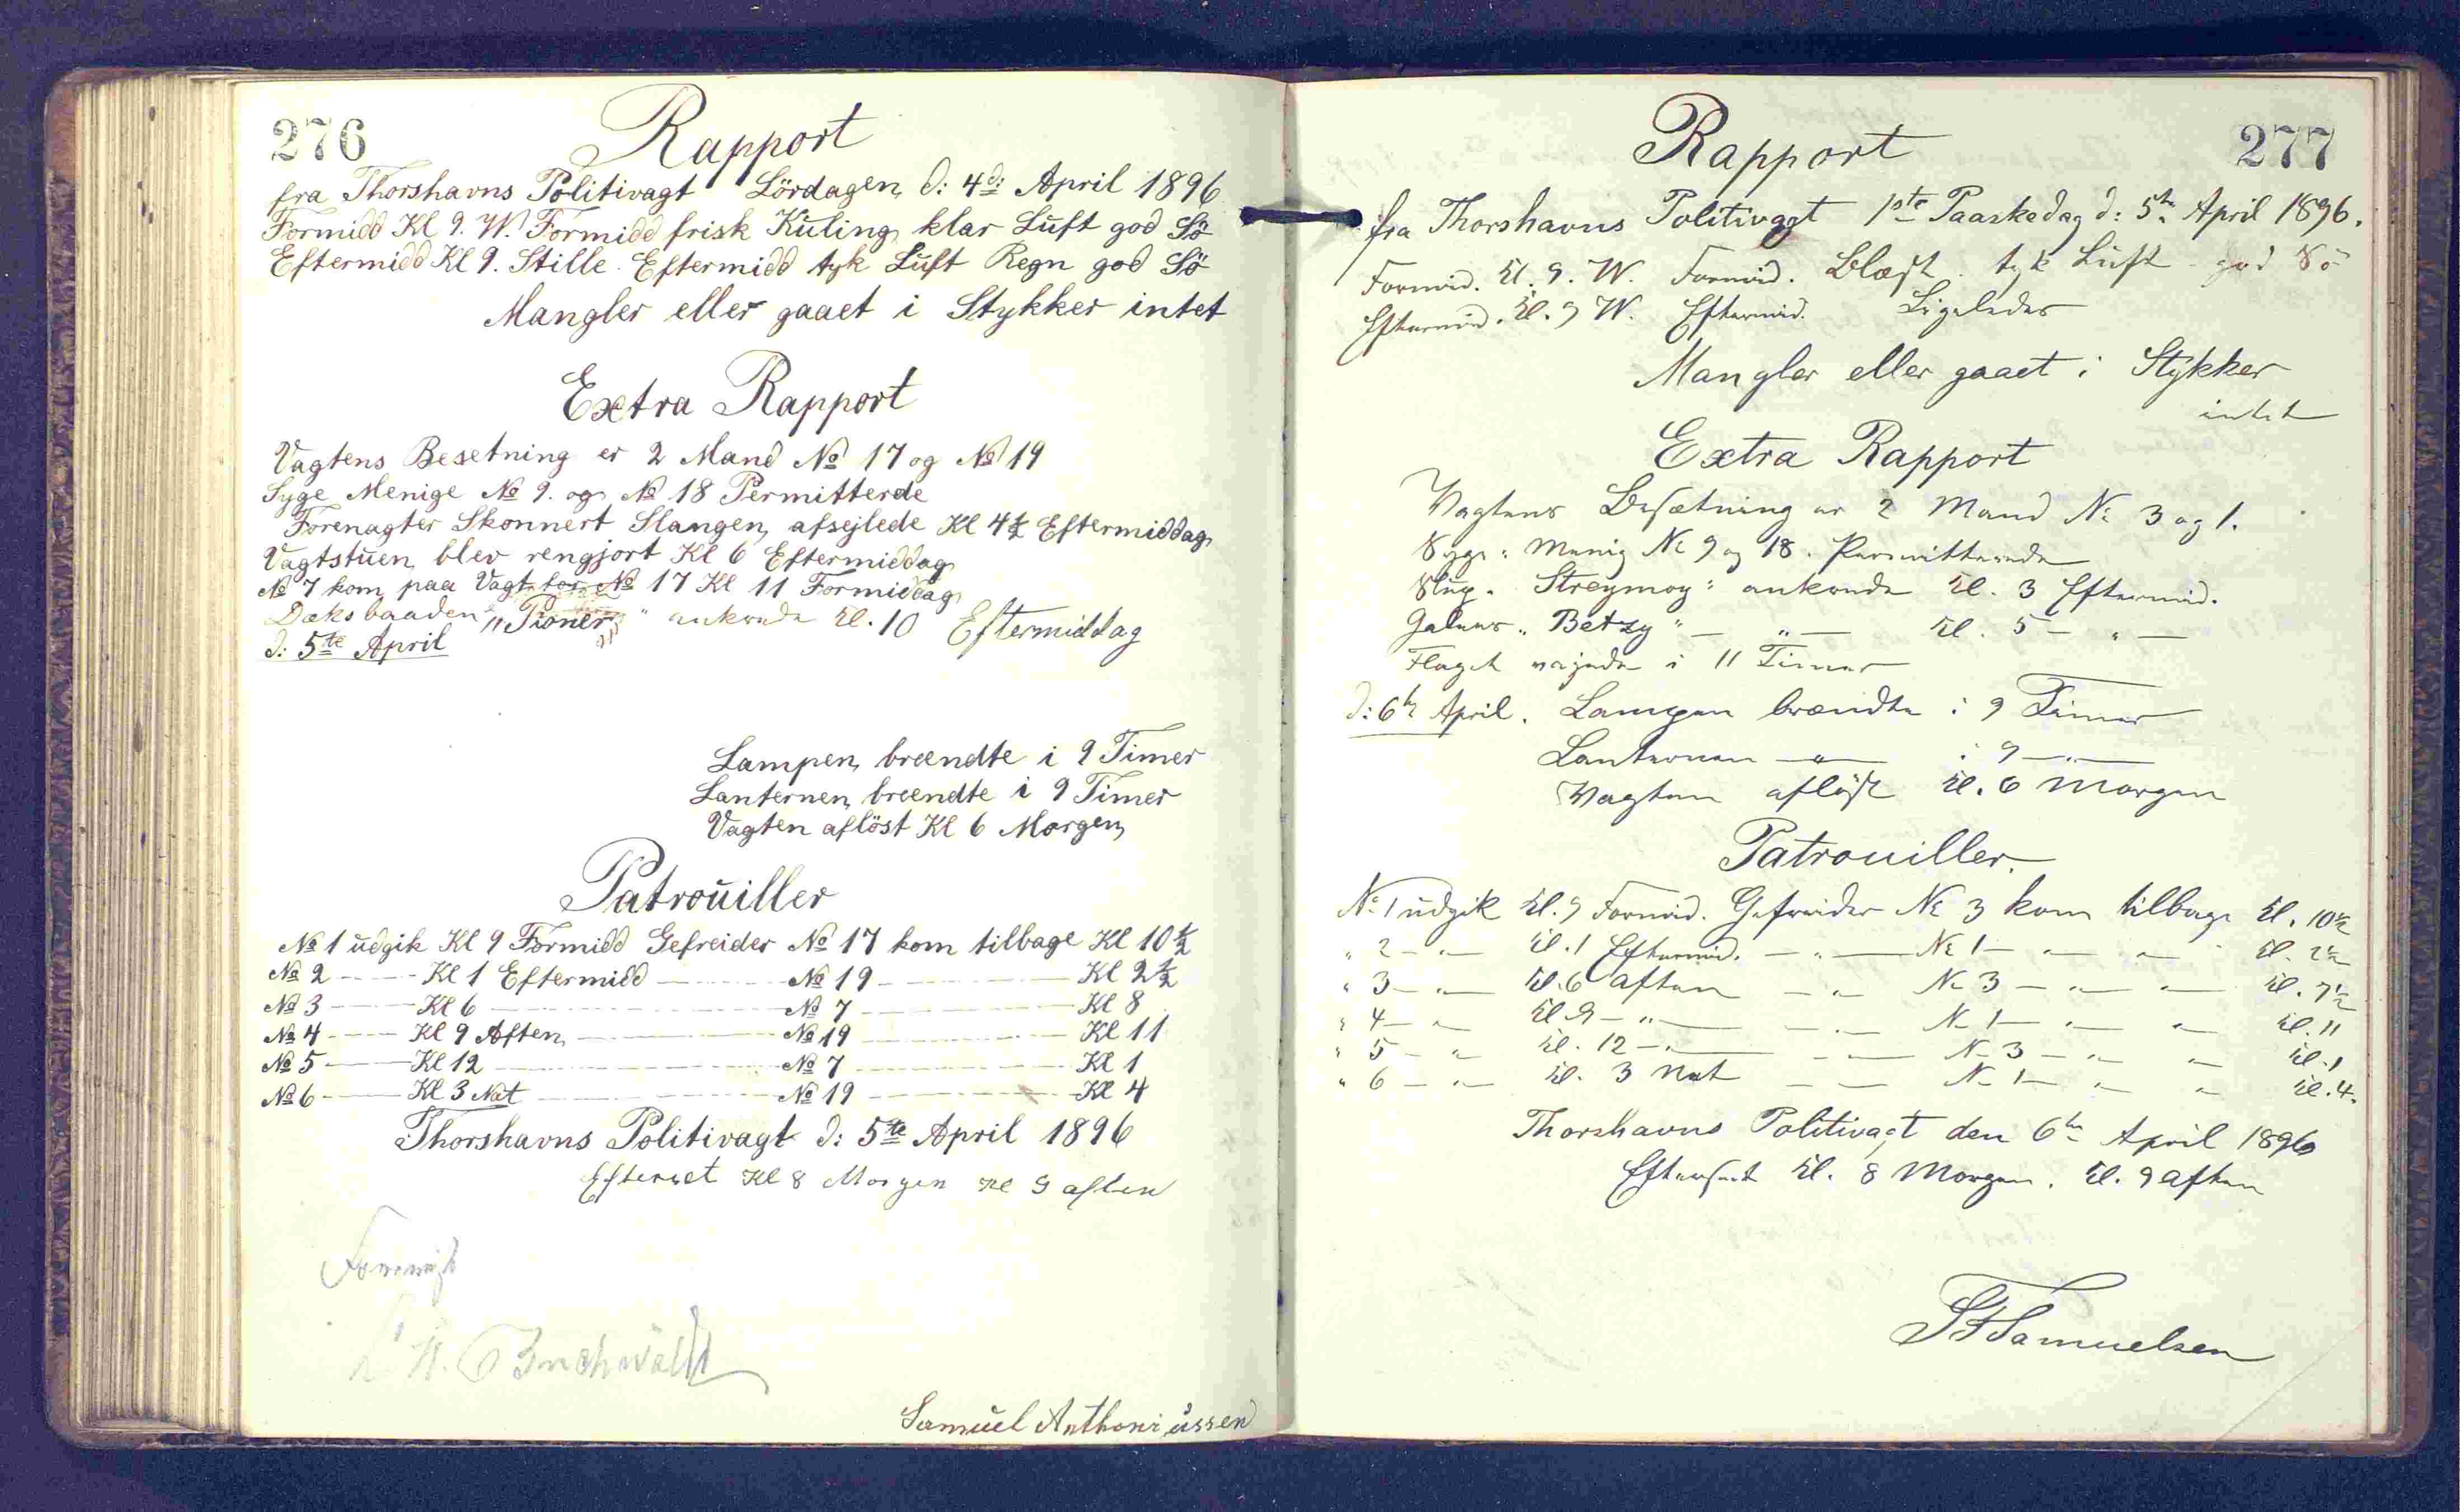 276
Rapport
fra Thorshavns Politivagt Lördagen d: 4d: April 1896
Formidd Kl 9. W. Formidd frisk Kuling klar Luft god Sö
Eftermidd Kl 9. Stille. Eftermidd tyk Luft Regn god Sö
Mangler eller gaaet i Stykker intet
Extra Rapport
Vagtens Besetning er 2 Mand No 17 og No 19
Syge Menige No 9. og No 18 Permitterde
Forenagter Skonnert Slangen afsejlede Kl 4½ Eftermiddag
Vagtstuen blev rengjort Kl 6 Eftermiddag
No 7 kom paa Vagt for No 17 Kl 11 Formiddag
Dæksbaaden "Pioner" ankomde Kl. 10 Eftermiddag
d: 5te April
Lampen brændte i 9 Timer
Lanternen brændte i 9 Timer
Vagten aflöst Kl 6 Morgen
Patrouiller
No 1 udgik Kl 9 Formidd Gefreider No 17 kom tilbage Kl 10½
No 2 Kl 1 Eftermidd No 19 Kl 2½
No 3 Kl 6 No 7 Kl 8
No 4 Kl 9 Aften No 19 Kl 11
No 5 Kl 12 No 7 Kl 1
No 6 Kl 3 Nat No 19 Kl 4
Thorshavns Politivagt d: 5te April 1896
Efterset Kl 8 Morgen Kl 9 aften
H. Buchwaldt
Samuel Anthoniussen
277
Rapport
fra Thorshavns Politivagt 1ste Paaskedag d: 5te April 1896.
Formid. Kl. 9. W. Formid. Blæst. tyk Luft god Sö
Eftermid. Kl. 9 W. Eftermid. Ligeledes
Mangler eller gaaet i Stykker
intet
Extra Rapport
Vagtens Besætning er 2 Mand No 3 og 1.
Syge: Menig No 9 og 18. Permitterede
Slup "Streymoy" ankomde Kl. 3 Eftermid.
Galeas "Betzy" — " — Kl. 5 — " —
Flaget vajede i 11 Timer
d: 6te April. Lampen brændte i 9 Timer
Lanternen — " — i 9 — " —
Vagten aflöst Kl. 6 Morgen
Patrouiller.
No 1 udgik Kl. 9 Formid. Gefreider No 3 kom tilbage Kl. 10½
" 2 — " — Kl. 1 Eftermid. — " — No 1 — " — " — Kl. 2½
" 3 — " — Kl. 6 Aften — " — No 3 — " — " — Kl. 7½
" 4 — " — Kl 9 — " — — " — No 1 — " — " — Kl. 11
" 5 — " — Kl. 12 — " — — " — No 3 — " — " — Kl. 1
" 6 — " — Kl. 3 Nat — " — No 1 — " — " — Kl. 4.
Thorshavns Politivagt den 6te April 1896
Efterset Kl. 8 Morgen. Kl. 9 Aften
Samuelsen